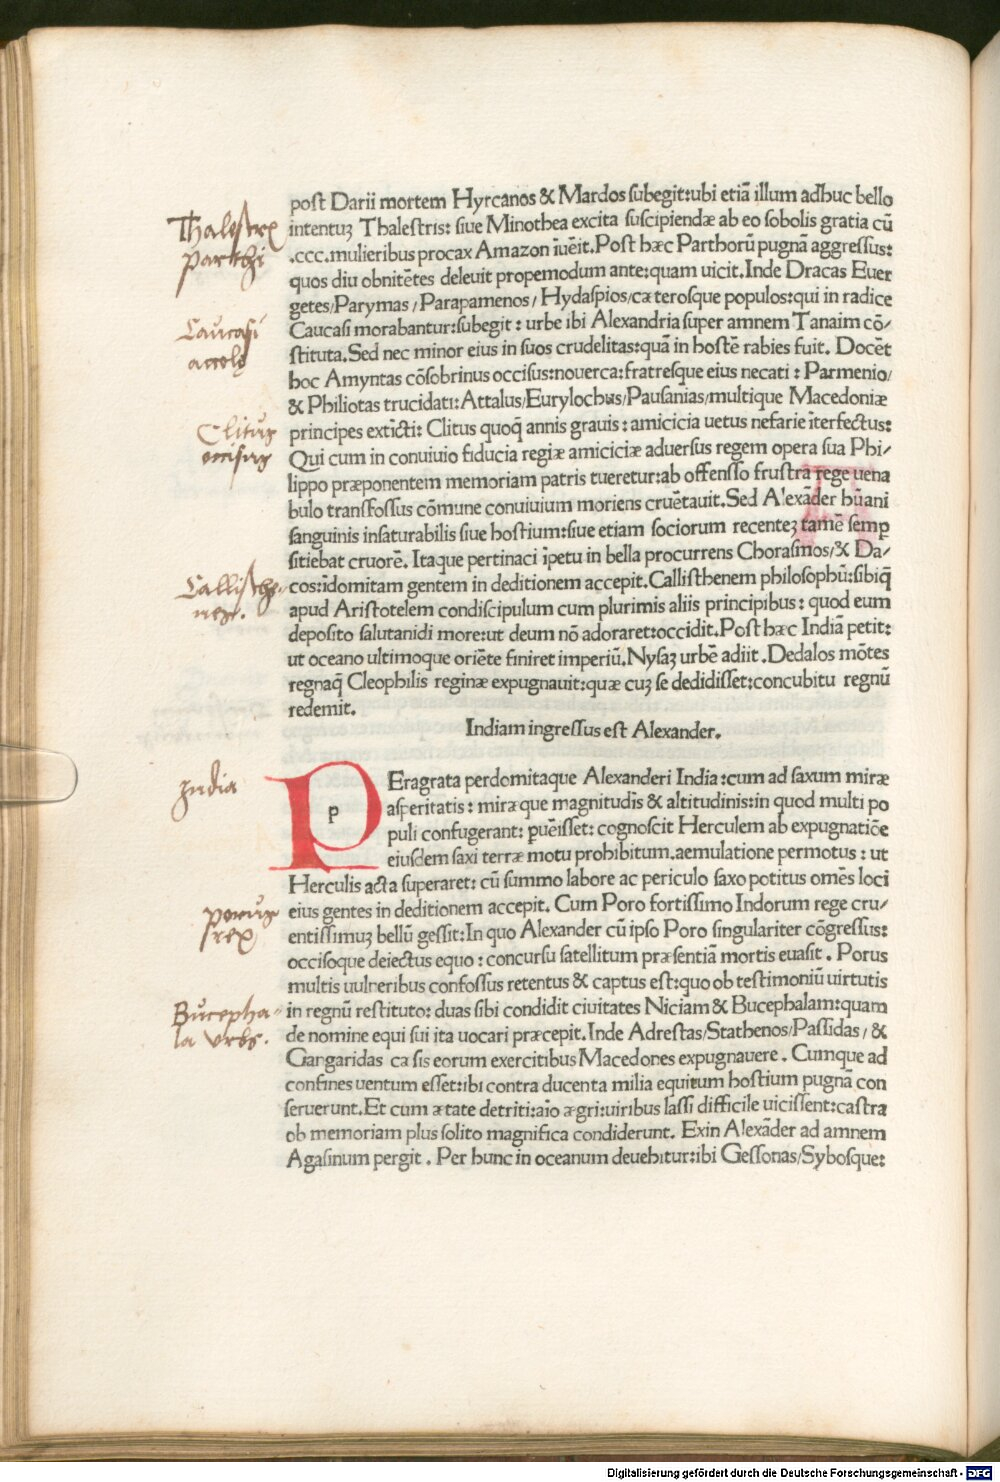 post Darii mortem Hyrcanos & Mardos subegit:ubi etiā illum adhuc bello
intentuꝫ Thalestris: siue Minothea excita suscipiendæ ab eo sobolis gratia cū
.ccc.mulieribus procax Amazon īuēit.Post hæc Parthorū pugnā aggressus:
quos diu obnitētes deleuit propemodum ante:quam uicit.Inde Dracas Euer
getes/Parymas/Parapamenos/Hydaspios/cæterosque populos:qui in radice
Caucasi morabantur:subegit: urbe ibi Alexandria super amnem Tanaim cō/
stituta.Sed nec minor eius in suos crudelitas:quā in hostē rabies fuit. Docēt
hoc Amyntas cōsobrinus occisus:nouerca:fratresque eius necati: Parmenio/
& Philiotas trucidati:Attalus/Eurylochus/Pausanias/multique Macedoniæ
principes extīcti: Clitus quoq̄ annis grauis: amicicia uetus nefarie īterfectus:
Qui cum in conuiuio fiducia regiæ amiciciæ aduersus regem opera sua Phi/
lippo præponentem memoriam patris tueretur:ab offensso frustra rege uena
bulo transfossus cōmune conuiuium moriens cruētauit.Sed Alexāder hūani
sanguinis insaturabilis siue hostium:siue etiam sociorum recenteꝫ tamē semp
sitiebat cruorē. Itaque pertinaci īpetu in bella procurrens Chorasmos/& Da/
cos:idomitam gentem in deditionem accepit.Callisthenem philosophū:sibiq̄
apud Aristotelem condiscipulum cum plurimis aliis principibus: quod eum
deposito salutanidi more:ut deum nō adoraret:occidit.Post hæc Indiā petit:
ut oceano ultimoque oriēte finiret imperiū.Nysaꝫ urbē adiit.Dedalos mōtes
regnaq̄ Cleophilis reginæ expugnauit:quæ cuꝫ se dedidisset:concubitu regnū
redemit.
Indiam ingressus est Alexander.
p
PEragrata perdomitaque Alexanderi India:cum ad saxum miræ
asperitatis: miræque magnitudis & altitudinis:in quod multi po
puli confugerant: puēisset: cognoscit Herculem ab expugnatiōe
eiusdem saxi terræ motu prohibitum.aemulatione permotus: ut
Herculis acta superaret: cū summo labore ac periculo saxo potitus omēs loci
eius gentes in deditionem accepit. Cum Poro fortissimo Indorum rege cru/
entissimuꝫ bellū gessit:In quo Alexander cū ipso Poro singulariter cōgressus:
occisoque deiectus equo: concursu satellitum præsentiā mortis euasit. Porus
multis uulneribus confossus retentus & captus est:quo ob testimoniū uirtutis
in regnū restituto: duas sibi condidit ciuitates Niciam & Bucephalam:quam
de nomine equi sui ita uocari præcepit.Inde Adrestas/Stathenos/Passidas/&
Gangaridas cæsis eorum exercitibus Macedones expugnauere. Cumque ad
confines uentum esset:ibi contra ducenta milia equitum hostium pugnā con
seruerunt.Et cum ætate detriti:aīo ægri:uiribus lassi difficile uicissent:castra
ob memoriam plus solito magnifica condiderunt. Exin Alexāder ad amnem
Agasinum pergit. Per hunc in oceanum deuehitur:ibi Gessonas/Sybosque:
Thalestrex
parthi
Caucasi
accolę
Clitus
occisus
Callisthe-
nes.
India
porus
rex
Bucepha-
la urbs.
Digitalisierung gefördert durch die Deutsche Forschungsgemeinschaft - DFG